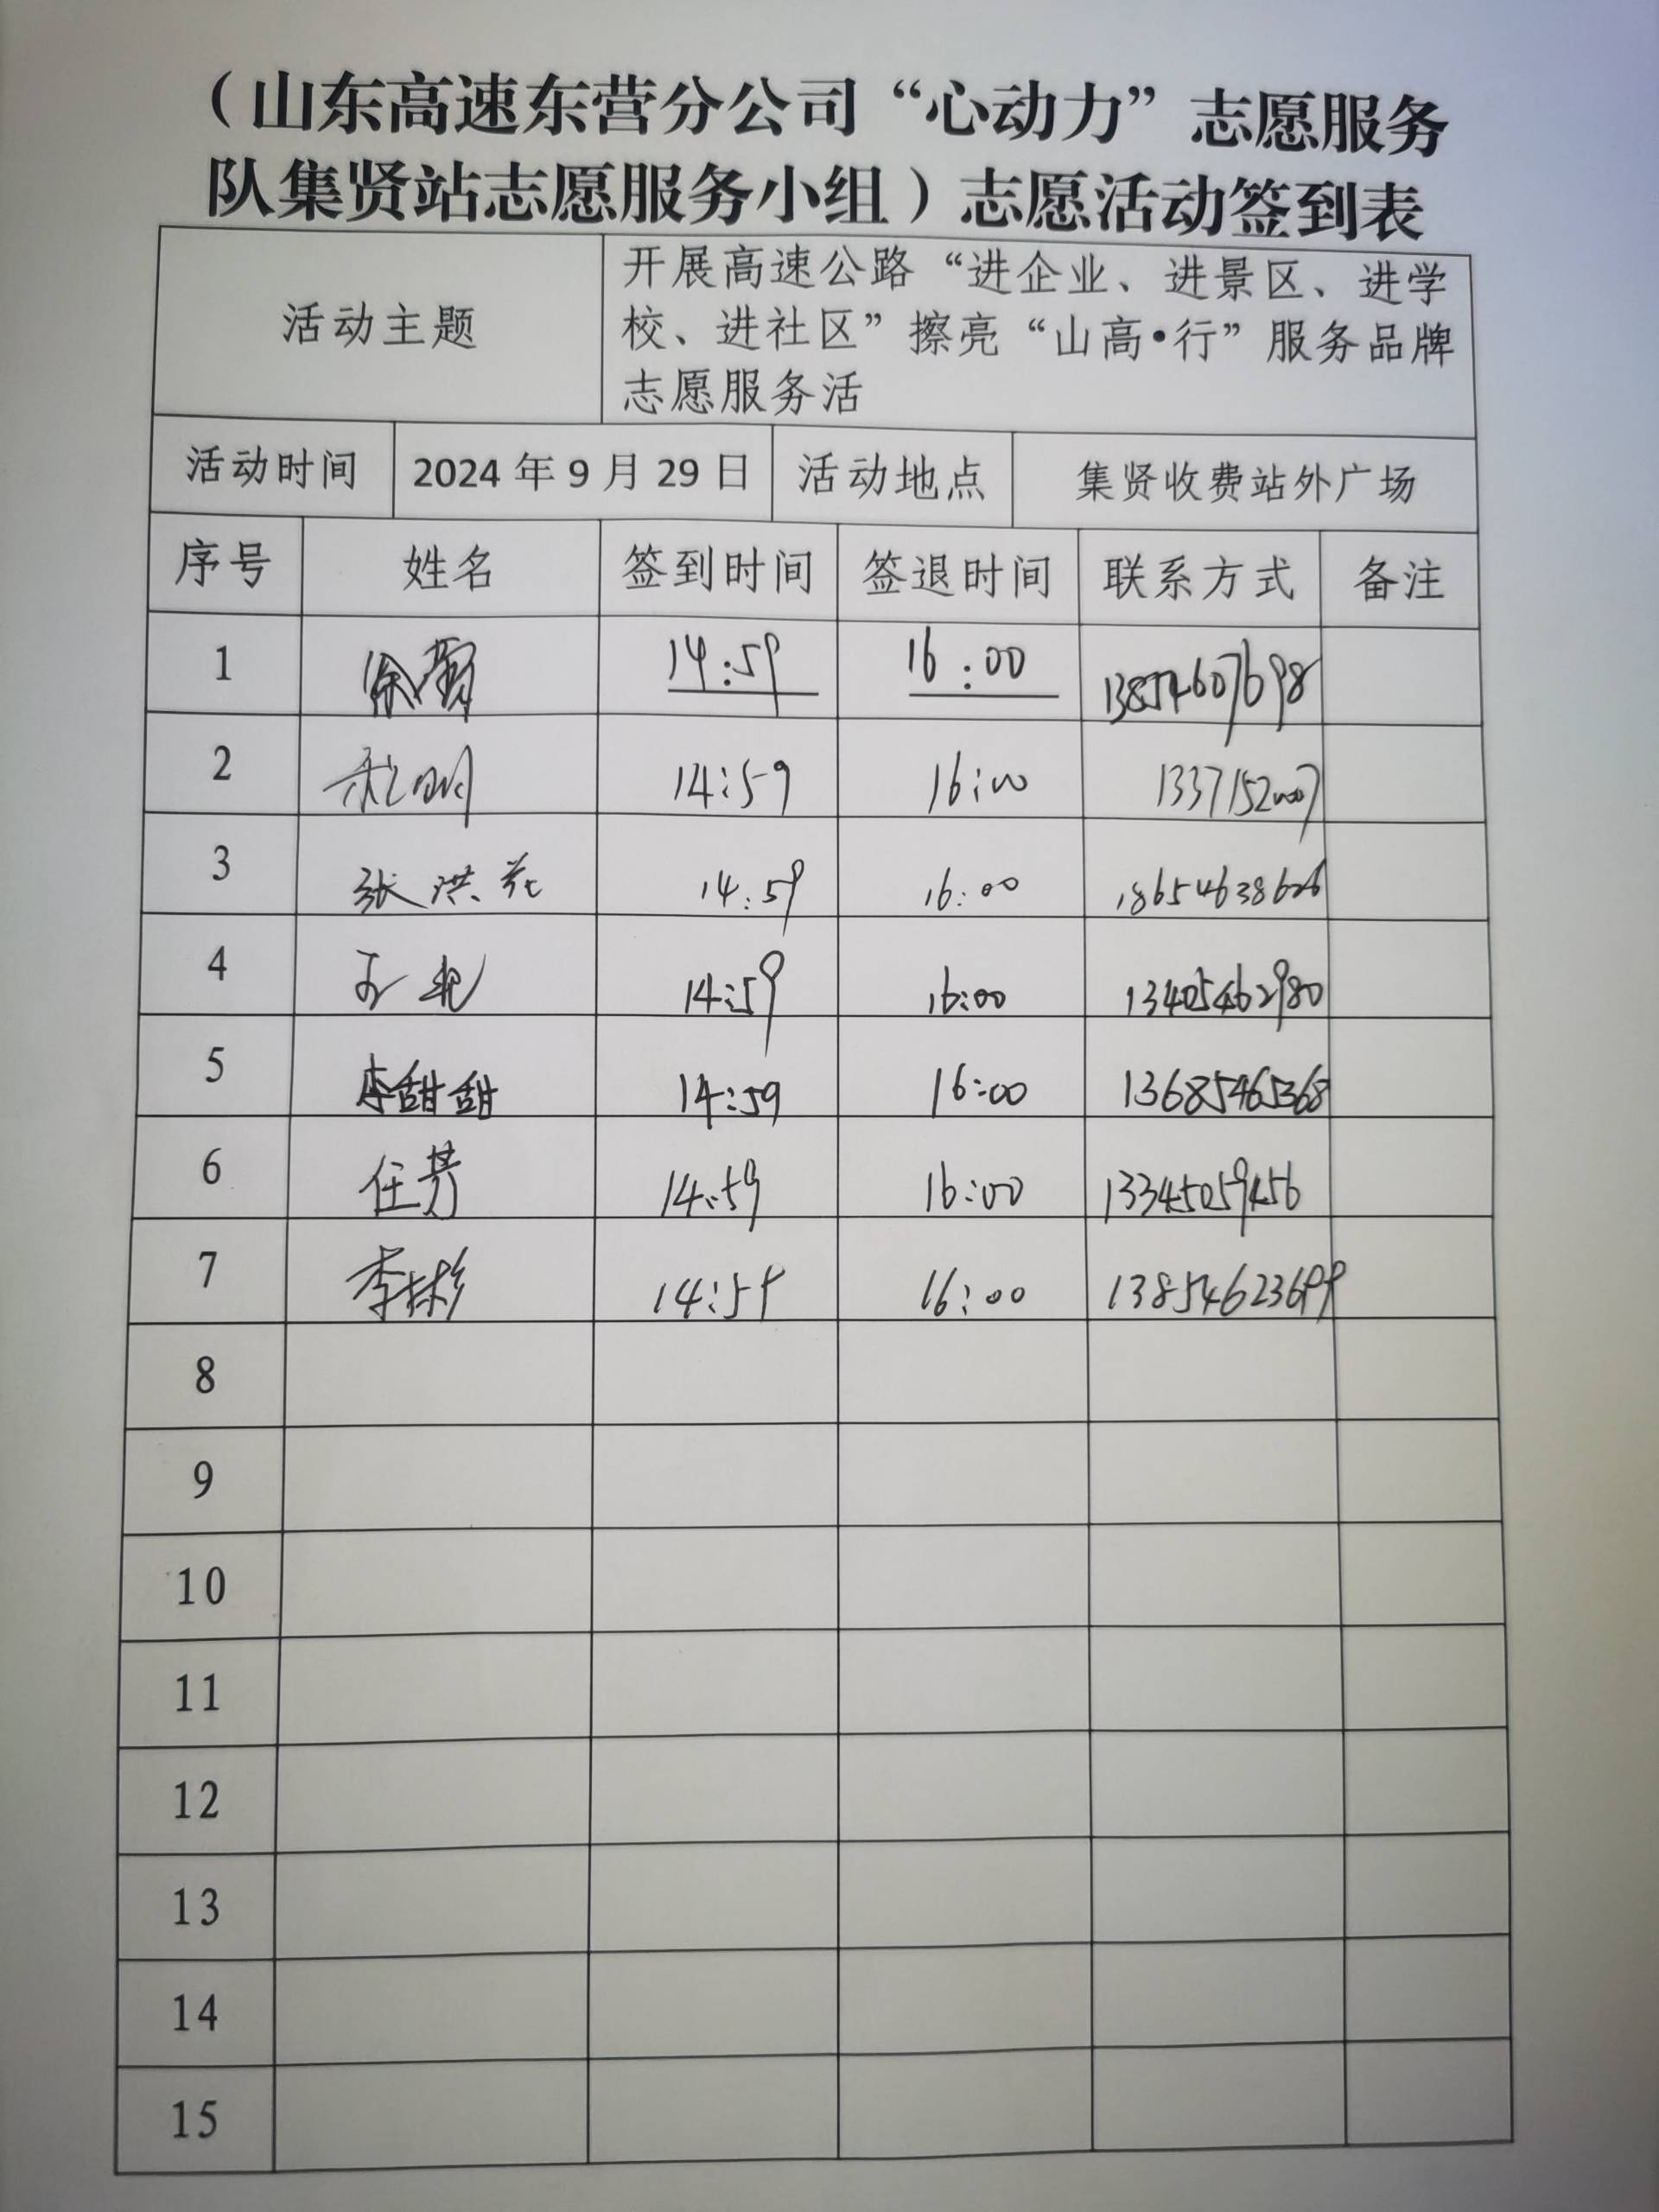 （山东高速东营分公司“心动力”志愿服务
队集贤站志愿服务小组）志愿活动签到表
活动主题
开展高速公路“进企业、进景区、进学
校、进社区”擦亮“山高•行”服务品牌
志愿服务活
活动时间 2024 年 9 月 29 日 活动地点 集贤收费站外广场
序号 姓名 签到时间 签退时间 联系方式 备注
1 徐 14:59 16:00 13854607698
2 14:59 16:00 13371520007
3 张洪花 14:59 16:00 18654638626
4 14:59 16:00 13405462980
5 李甜甜 14:59 16:00 13685465368
6 任芳 14:59 16:00 13345059456
7 李彬彬 14:59 16:00 13854623699
8
9
10
11
12
13
14
15